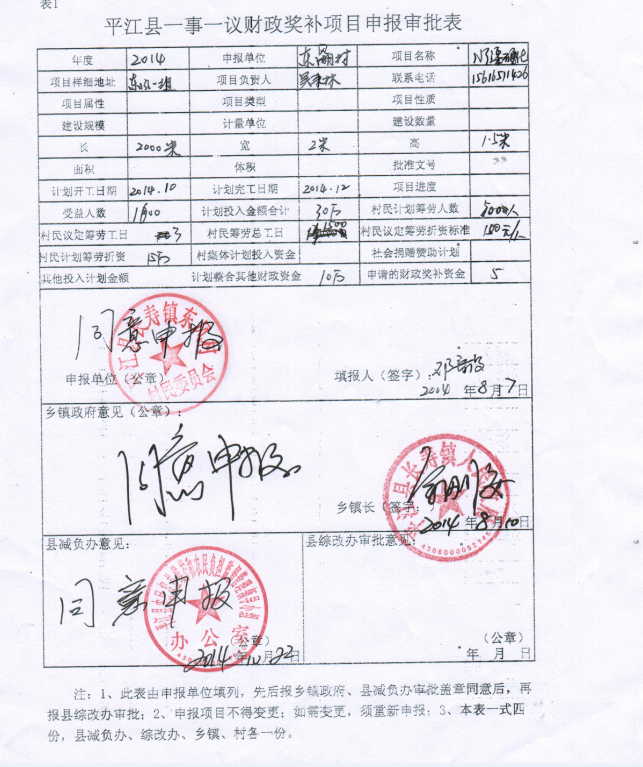 表1
平江县一事一议财政奖补项目申报审批表
年度 2014 申报单位 村 项目名称
项目详细地址 项目负责人 联系电话 15616511426
项目属性 项目类型 项目性质
建设规模 计量单位 建设数量
长 2000米 宽 2米 高 1.5米
面积 体积 批准文号
计划开工日期 2014.10 计划完工日期 2014.12 项目进度
受益人数 1600 计划投入金额合计 30万 村民计划筹劳人数
村民议定筹劳工日 3 村民筹劳总工日 1500 村民议定筹劳折资标准
村民计划筹劳折资 15万 村集体计划投入资金 社会捐赠赞助计划
其他投入计划金额 计划整合其他财政资金 10万 申请的财政奖补资金 5
同意申报
申报单位(公章) 填报人(签字):
村民委员会
2014年8月7日
乡镇政府意见(公章):
同意申报
平江县长寿镇人民政府
乡镇长(签字)
2014年8月10日
县减负办意见: 县综改办审批意见:
同意申报
办公室
(公章) (公章)
2014年10月22日 年 月 日
注:1、此表由申报单位填列,先后报乡镇政府、县减负办审批盖章同意后,再
报县综改办审批;2、申报项目不得变更;如需变更,须重新申报;3、本表一式四
份,县减负办、综改办、乡镇、村各一份。